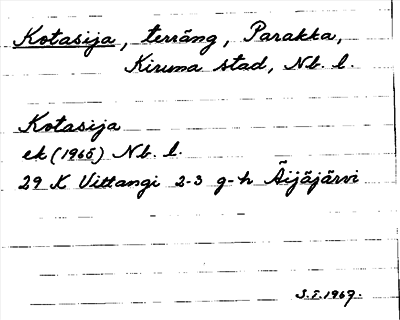 Kotasija, terräng, Parakka,
Kiruna stad, Nb. l.
Kotasija
ek (1965) Nb. l.
29 K Vittangi 2-3 g-h Äijäjärvi
S.I. 1969.